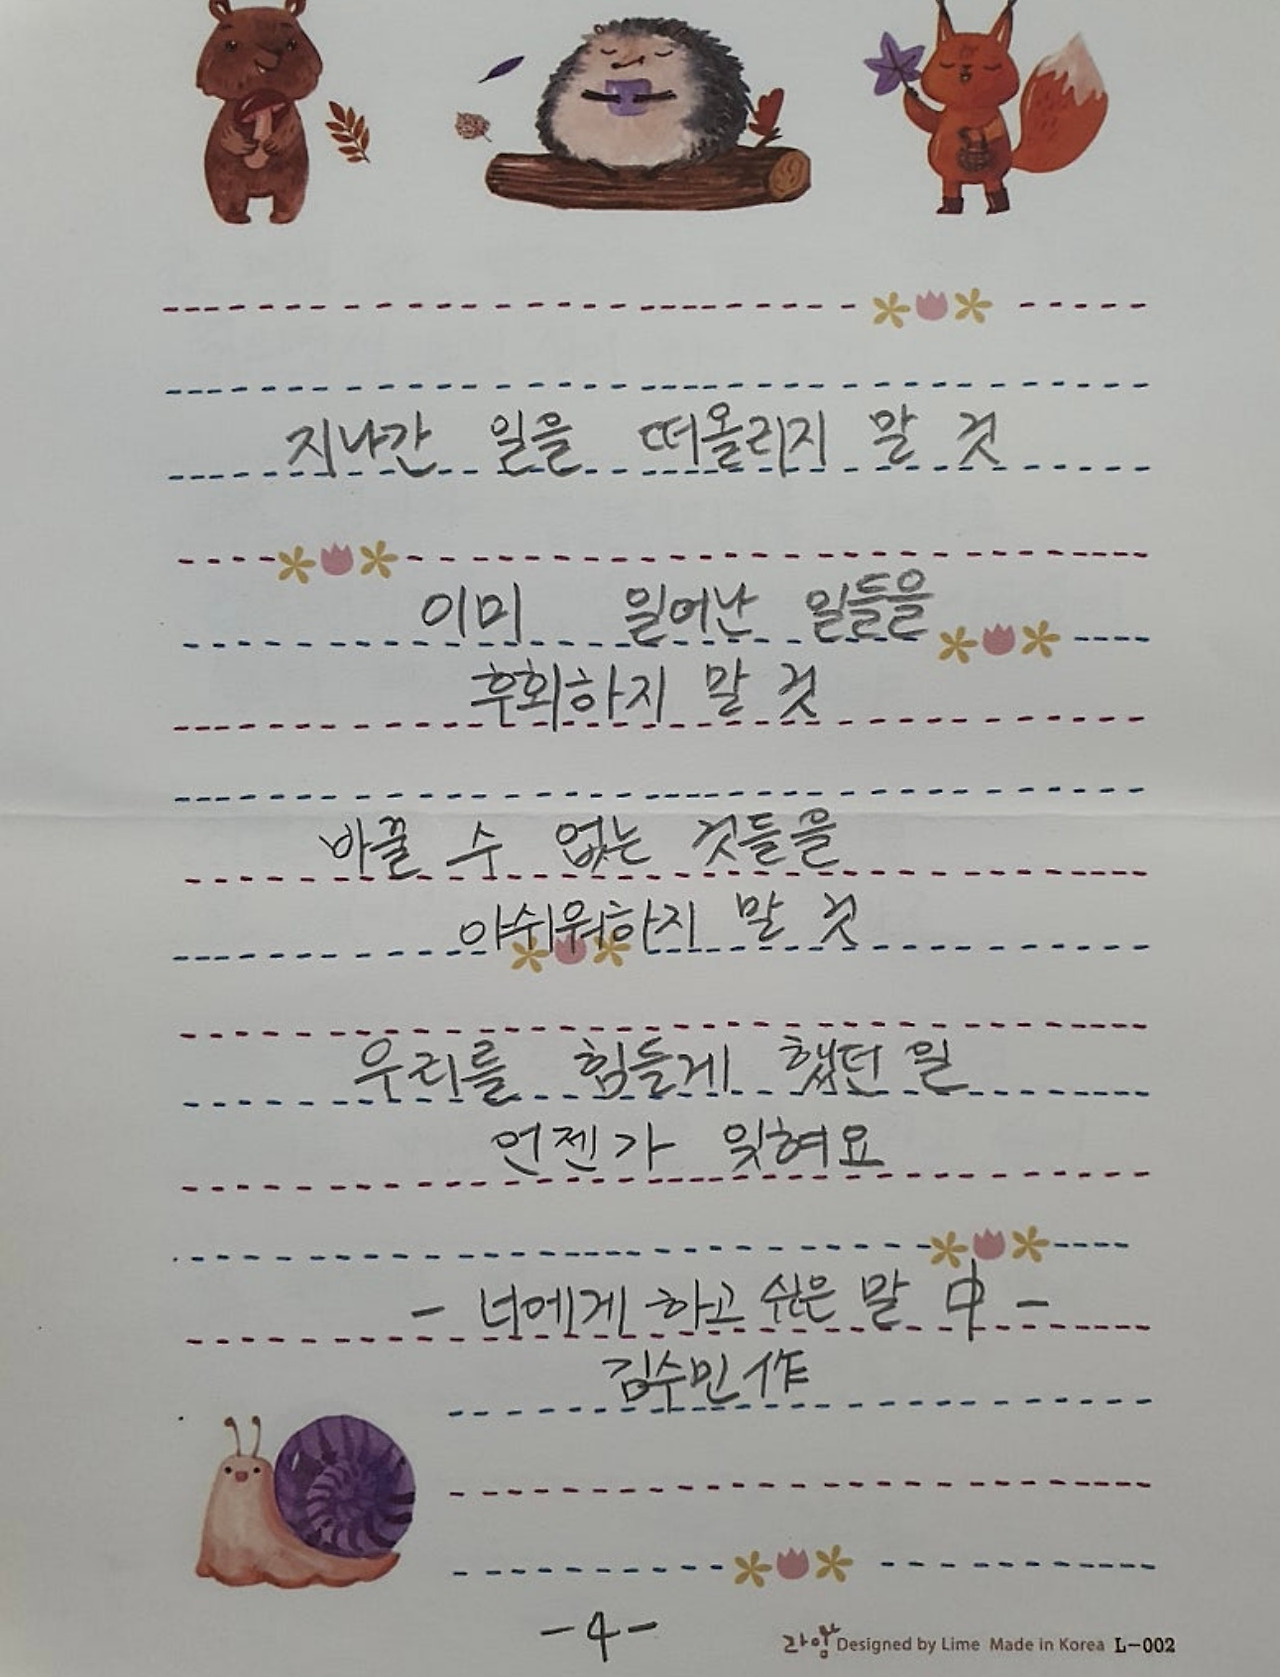 지나간 일을 떠올리지 말 것
이미 일어난 일들을
후회하지 말 것
바꿀 수 없는 것들을
아쉬워하지 말 것
우리를 힘들게 했던 일
언젠가 잊혀요
- 너에게 하고 싶은 말 中 -
김수민 作
-4-
라임 Designed by Lime Made in Korea L-002